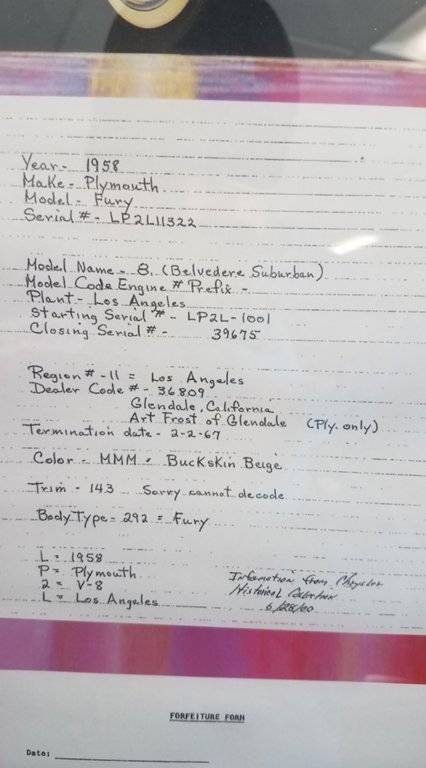 Year - 1958
Make - Plymouth
Model - Fury
Serial # - LP2L11322
Model Name - 8, (Belvedere Suburban)
Model Code Engine # Prefix -
Plant - Los Angeles
Starting Serial # - LP2L-1001
Closing Serial # - 39675
Region # -11 = Los Angeles
Dealer Code # - 36809
Glendale, California
Art Frost of Glendale (Ply. only)
Termination date - 2-2-67
Color - MMM - Buckskin Beige
Trim - 143 - Sorry cannot decode
Body Type - 292 = Fury
L = 1958
P = Plymouth
2 = V-8
L = Los Angeles
Information from Chrysler
Historical
FORFEITURE FORM
Date: